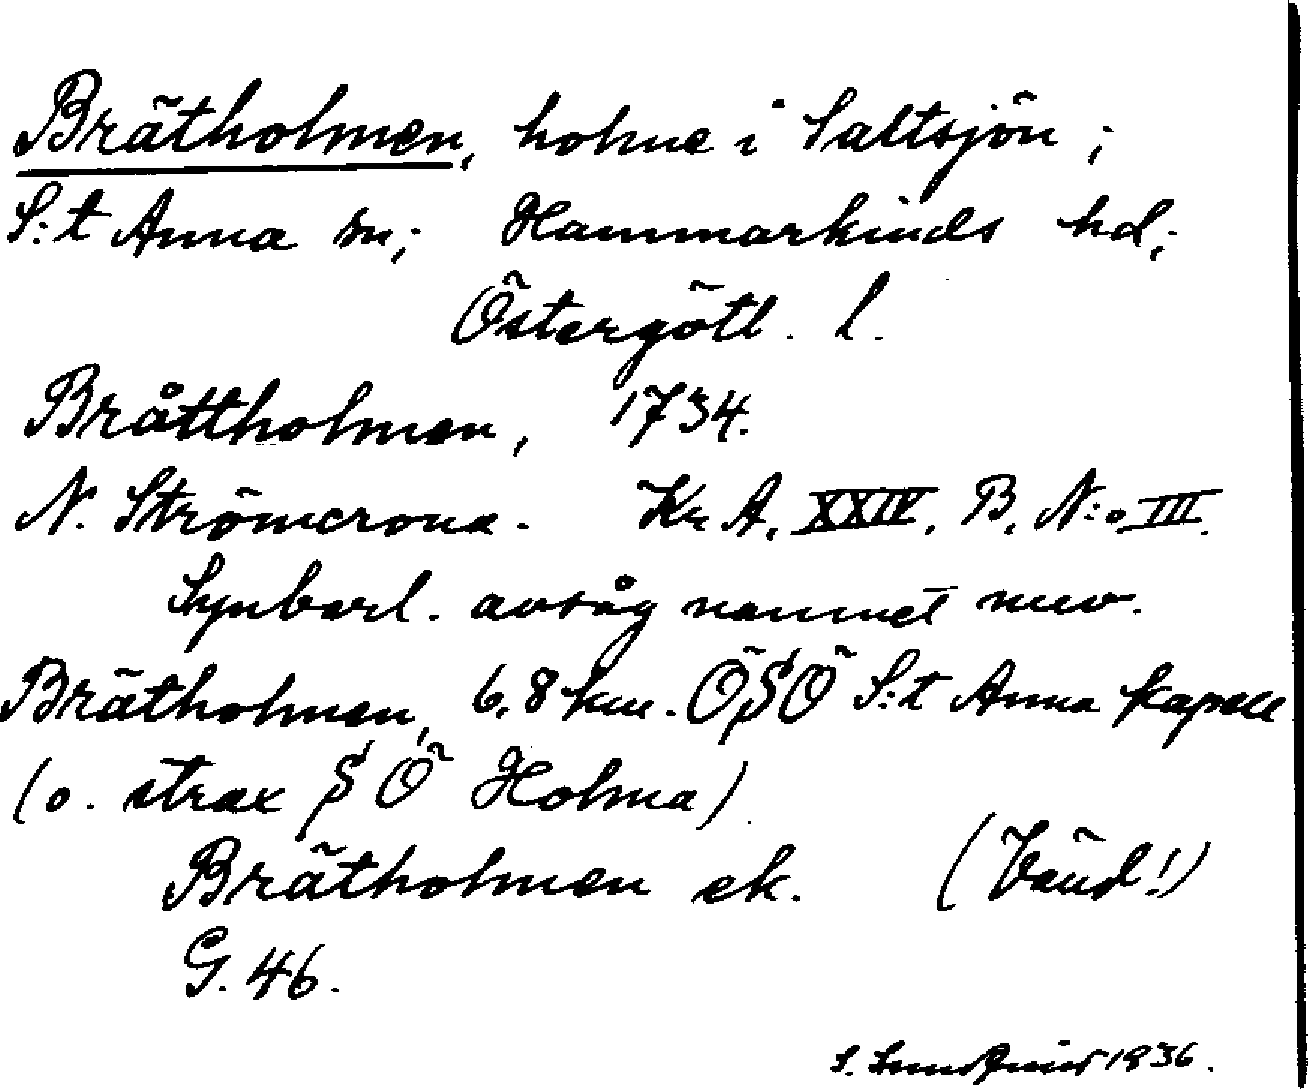 Brätholmen, holme i Saltsjön;
S:t Anna sn; Hammarkinds hd;
Östergötl. l.
Bråttholmen, 1734.
N. Strömcrona. Kr A. XXIV. B. N:o III.
Synbarl. avsåg namnet nuv.
Brätholmen, 6,8 km. ÖSÖ S:t Anna kapell
(o. strax S Ö Holma)
Brätholmen ek. (Vänd!)
G. 46.
S. 1936.